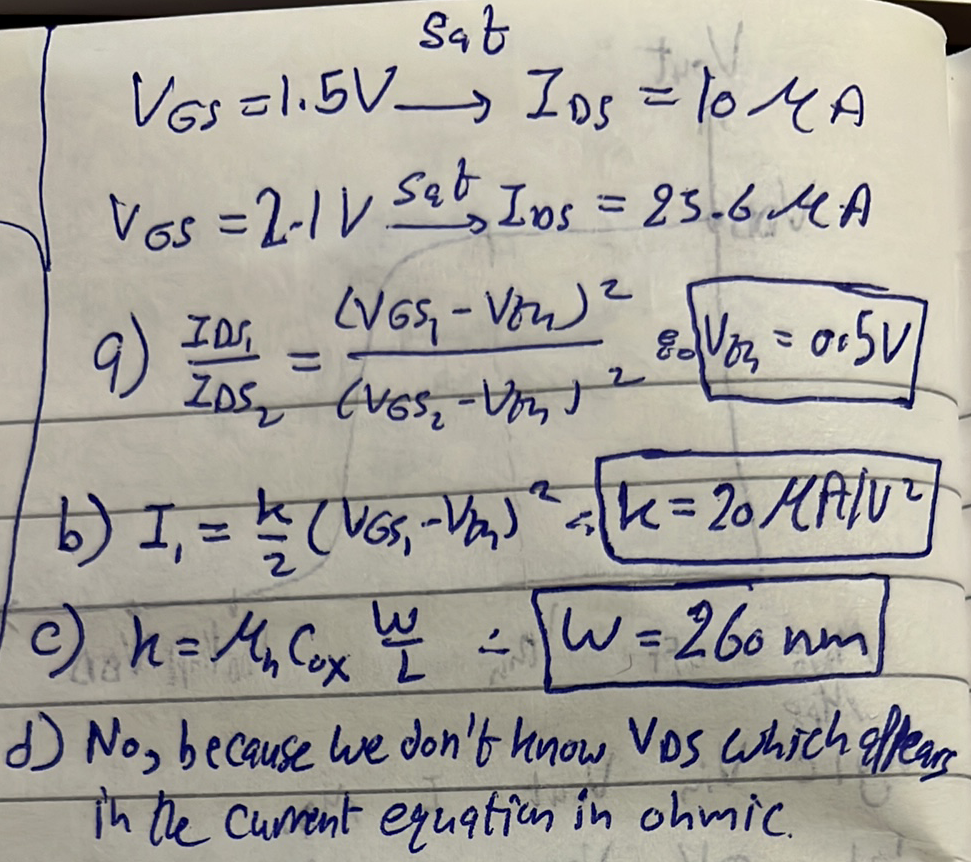 sat
V_GS = 1.5V → I_DS = 10 μA
V_GS = 2.1V sat → I_DS = 25.6 μA
a) I_DS₁ / I_DS₂ = (V_GS₁ - V_th)² / (V_GS₂ - V_th)² ∴ V_th = 0.5V
b) I₁ = k/2 (V_GS₁ - V_th)² ∴ k = 20 μA/V²
c) k = μ_n C_ox W/L ∴ W = 260 nm
d) No, because we don't know V_DS which appears
in the current equation in ohmic.